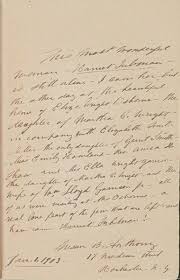 This most wonderful
woman - Harriet Tubman -
is still alive - I saw her but
the other day at the beautiful
home of Eliza Wright Osborne - the
daughter of Martha C. Wright -
in company with Elizabeth Smith
Miller - the only daughter of Gerrit Smith
Miss Emily Howland - Rev. Anna H.
Shaw and Mrs Ella Wright Garrison -
the daughter of Martha C. Wright and the
wife of Wm Lloyd Garrison Jr - all
of us were visiting at the Osbornes - a
real love feast of the few that are left - and
here came Harriet Tubman!
Susan B. Anthony
17 Madison Street
Jan. 1, 1903. Rochester - N.Y.